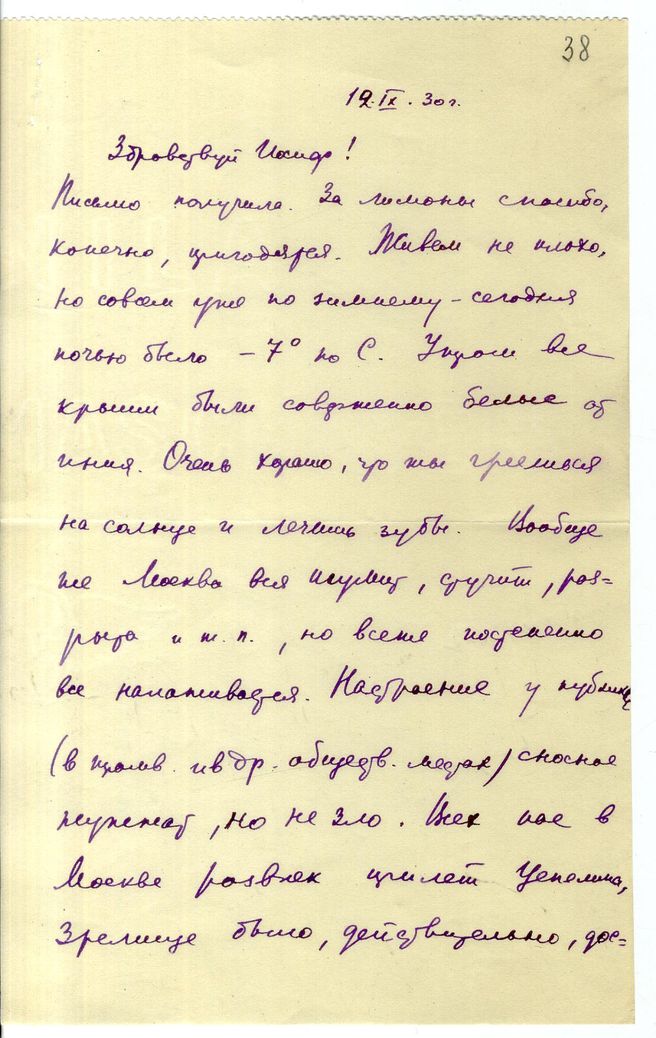 38
12.IX.30г.
Здравствуй Иосиф!
Письмо получила. За лимоны спасибо,
конечно, пригодятся. Живем не плохо,
но совсем уже по зимнему – сегодня
ночью было – 7° по С. Утром все
крыши были совершенно белые от
инея. Очень хорошо, что ты греешься
на солнце и лечишь зубы. Вообще
же Москва вся шумит, стучит, раз=
рыта и т.п., но все же постепенно
все налаживается. Настроение у публики
(в трамв. и в др. обществ. местах) сносное
жужжат, но не зло. Всех нас в
Москве развлек прилет Цепелина,
Зрелище было, действительно, дос=